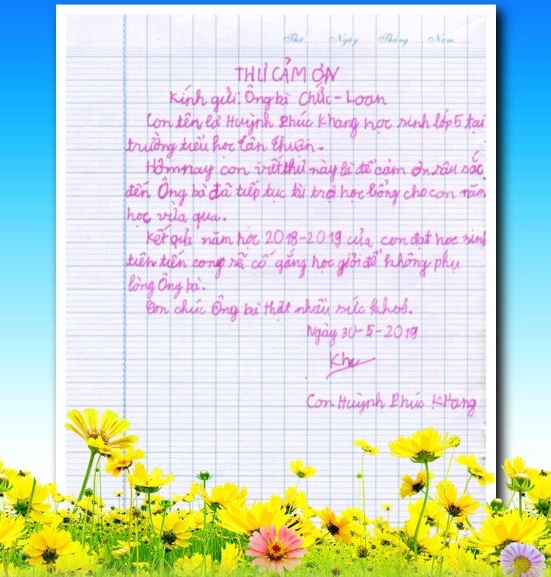 Thứ......... Ngày......... Tháng......... Năm.........
THƯ CẢM ƠN
Kính gửi: Ông bà Chức - Loan
Con tên là Huỳnh Phúc Khang học sinh lớp 5 tại
trường tiểu học Tân Thuận.
Hôm nay con viết thư này là để cảm ơn sâu sắc
đến Ông bà đã tiếp tục tài trợ học bổng cho con năm
học vừa qua.
Kết quả năm học 2018-2019 của con đạt học sinh
tiên tiến cong sẽ cố gắng học giỏi để không phụ
lòng Ông bà.
Con chúc Ông bà thật nhiều sức khoẻ.
Ngày 30-5-2019
Con Huỳnh Phúc Khang